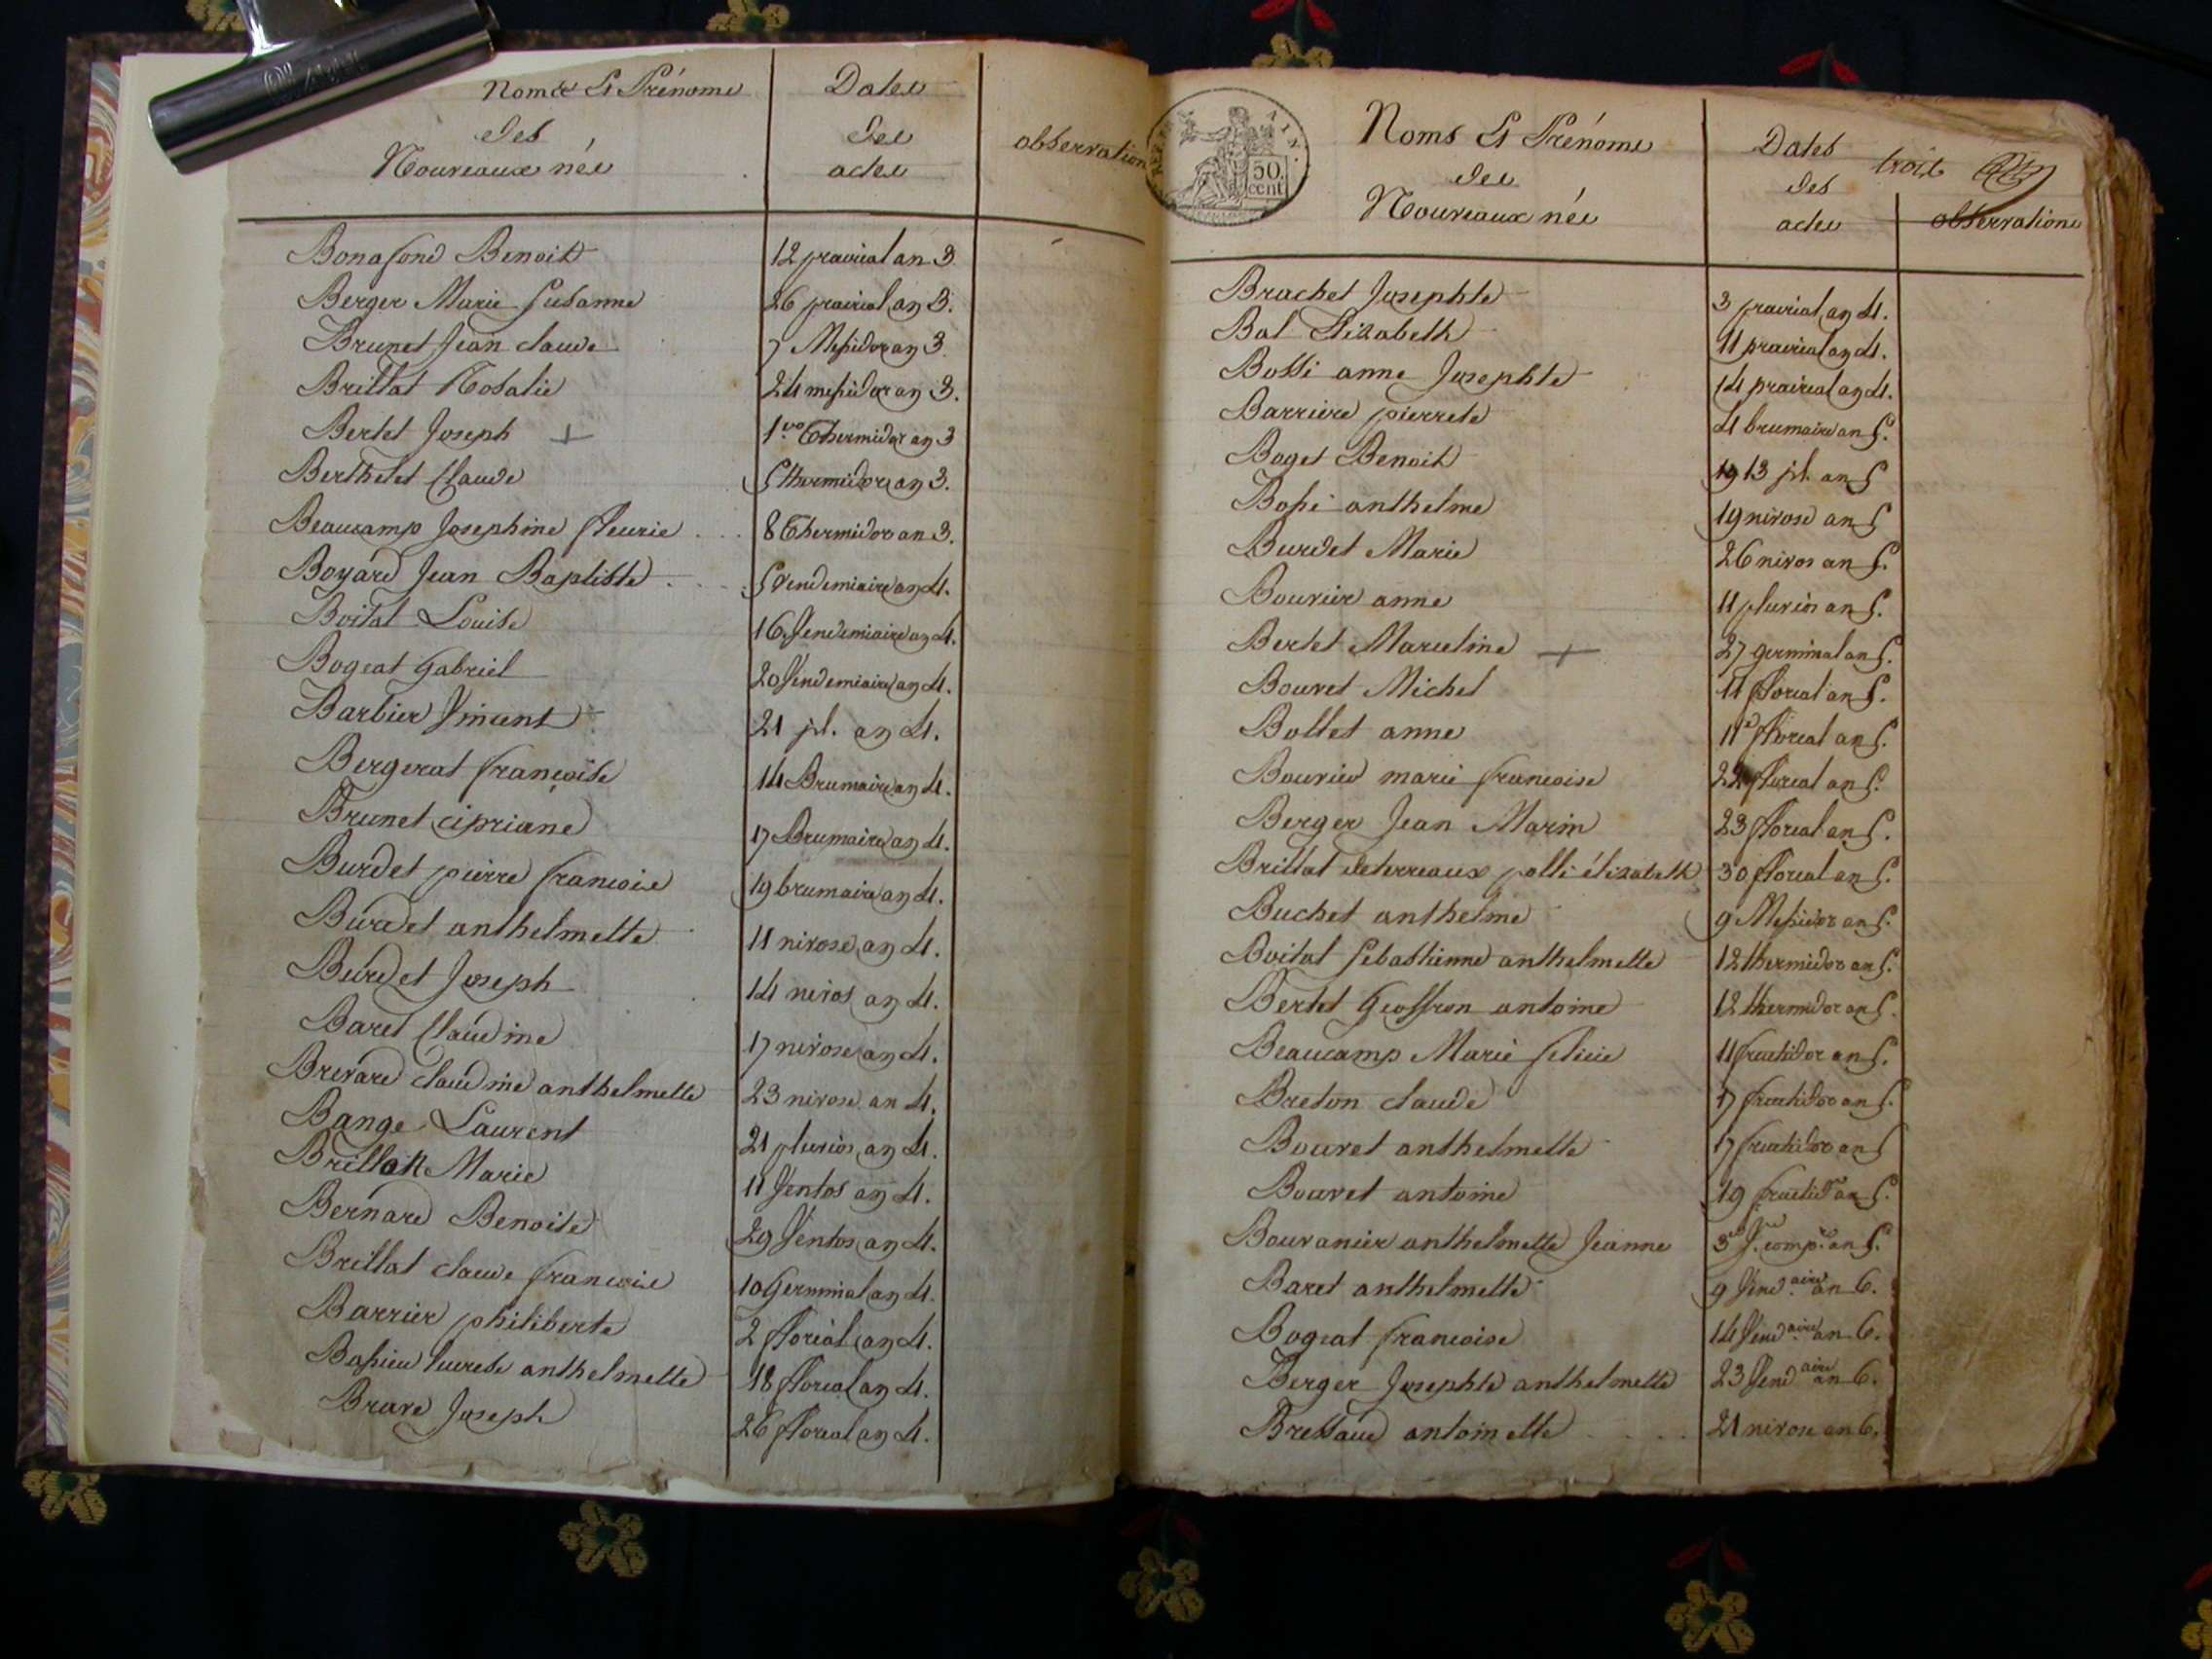 Noms Et Prénoms
des
Nouveaux nés
Dates
des
actes
observation
Bonafond Benoit 12 prairial an 3.
Berger Marie Susanne 26 prairial an 3.
Brunet Jean claude 7 Messidor an 3
Brillat Rosalie 24 messidor an 3.
Bertet Joseph + 1er Thermidor an 3
Berthelet Claude 5 thermidor an 3.
Beaucamp Josephine fleurie 8 Thermidor an 3.
Boyard Jean Baptiste 5 Vendemiaire an 4.
Boital Louise 16 Vendemiaire an 4.
Bogeat Gabriel 20 Vendemiaire an 4.
Barbier Vincent 21 id. an 4.
Bergerat francoise 14 Brumaire an 4.
Brunet cipriane 17 Brumaire an 4.
Burdet pierre francois 19 brumaire an 4.
Burdet anthelmette 11 nivose an 4.
Burdet Joseph 14 nivos an 4.
Baret Claudine 17 nivose an 4.
Brevard claudine anthelmette 23 nivose an 4.
Bange Laurent 21 pluvios an 4.
Brillat Marie 11 Ventos an 4.
Bernard Benoite 29 Ventos an 4.
Brillat claude francois 10 Germinal an 4.
Barrier philiberte 2 floréal an 4.
Bassieu lucrese anthelmette 18 floreal an 4.
Bravo Joseph 26 floreal an 4.
50.
cent
Noms Et Prénoms
des
Nouveaux nés
Dates
des
actes
trois
observations
Brachet Josephte 3 prairial an 4.
Bal Elizabeth 11 prairial an 4.
Bolli anne Josephte 14 prairial an 4.
Barriere pierrete 4 brumaire an 5.
Boget Benoit 13 id. an 5
Bossi anthelme 19 nivose an 5
Burdet Marie 26 nivos an 5.
Bouvier anne 11 pluvios an 5.
Bertet Marceline + 27 germinal an 5.
Bouvet Michel 11 floreal an 5.
Bollet anne 11 floreal an 5.
Bouvier marie francoise 22 floreal an 5.
Berger Jean Marin 23 floreal an 5.
Brillat deterreaux polli élizabeth 30 floreal an 5.
Buchet anthelme 9 Messidor an 5.
Boital Sebastienne anthelmette 12 thermidor an 5.
Bertet Geoffron antoine 12 thermidor an 5.
Beaucamp Marie felicie 11 fructidor an 5.
Breton claude 17 fructidor an 5.
Bouvet anthelmette 17 fructidor an 5
Bouvet antoine 19 fructidor an 5.
Bouvanier anthelmette Jeanne 3e J. compre an 5.
Baret anthelmette 9 Vendaire an 6.
Bogeat francoise 14 Vendaire an 6.
Berger Josephte anthelmette 23 Vendaire an 6.
Brettaud antoinette 21 nivose an 6.